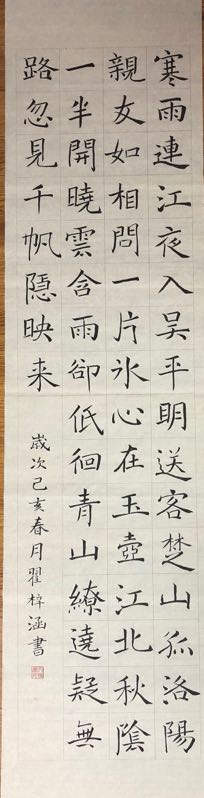 寒雨連江夜入吴平明送客楚山孤洛陽
親友如相問一片氷心在玉壺江北秋陰
一半開曉雲含雨卻低徊青山繚遶疑無
路忽見千帆隱映来
歲次己亥春月翟梓涵書